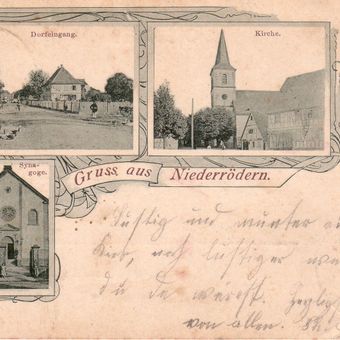 Dorfeingang.
Kirche.
Syna-
goge.
Gruss aus Niederrödern.
Lustig und munter
noch lustiger
du da wärest.
von allen.